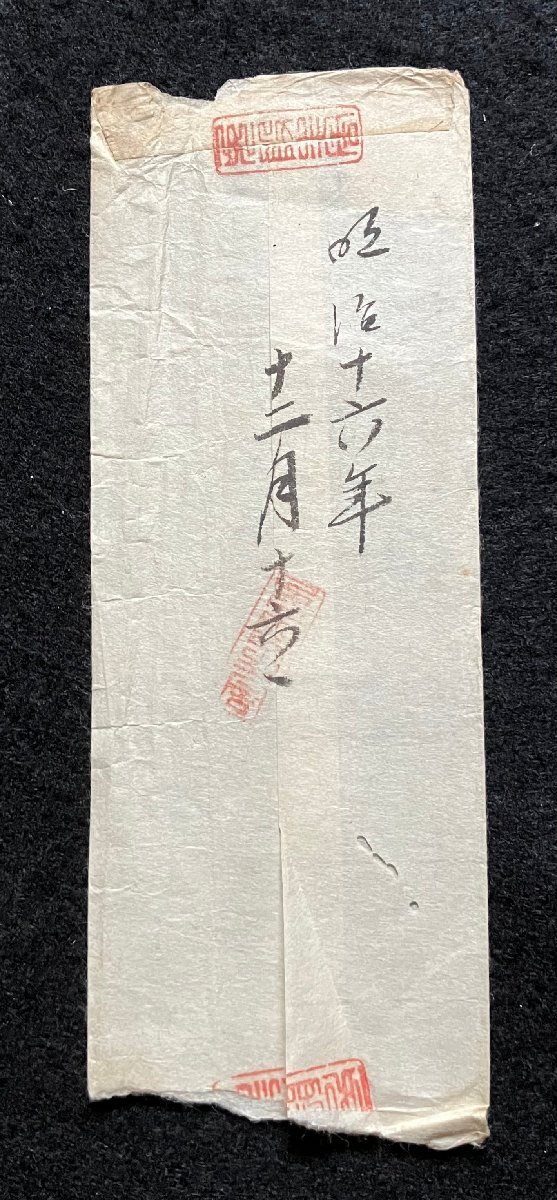 明治十六年
十二月十六日